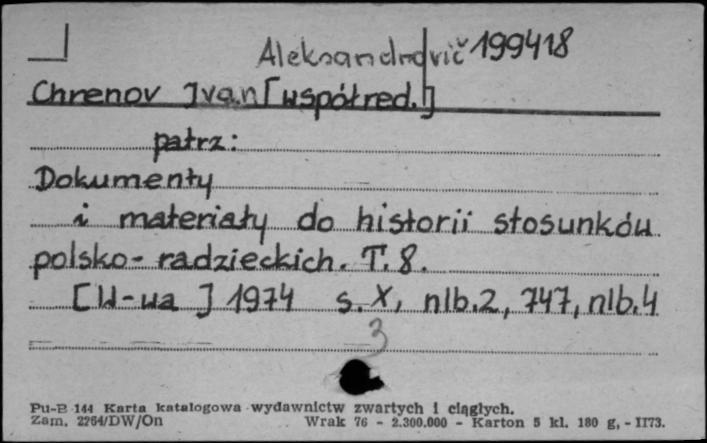 Aleksandrovič 199418
Chrenov Ivan [współred.]
patrz:
Dokumenty
i materiały do historii stosunków
polsko-radzieckich. T. 8.
[W-wa] 1974 s. X, nlb. 2, 747, nlb. 4
3
Pu-B 144 Karta katalogowa wydawnictw zwartych i ciągłych.
Zam. 2264/DW/On Wrak 76 - 2.300.000 - Karton 5 kl. 180 g, - II73.